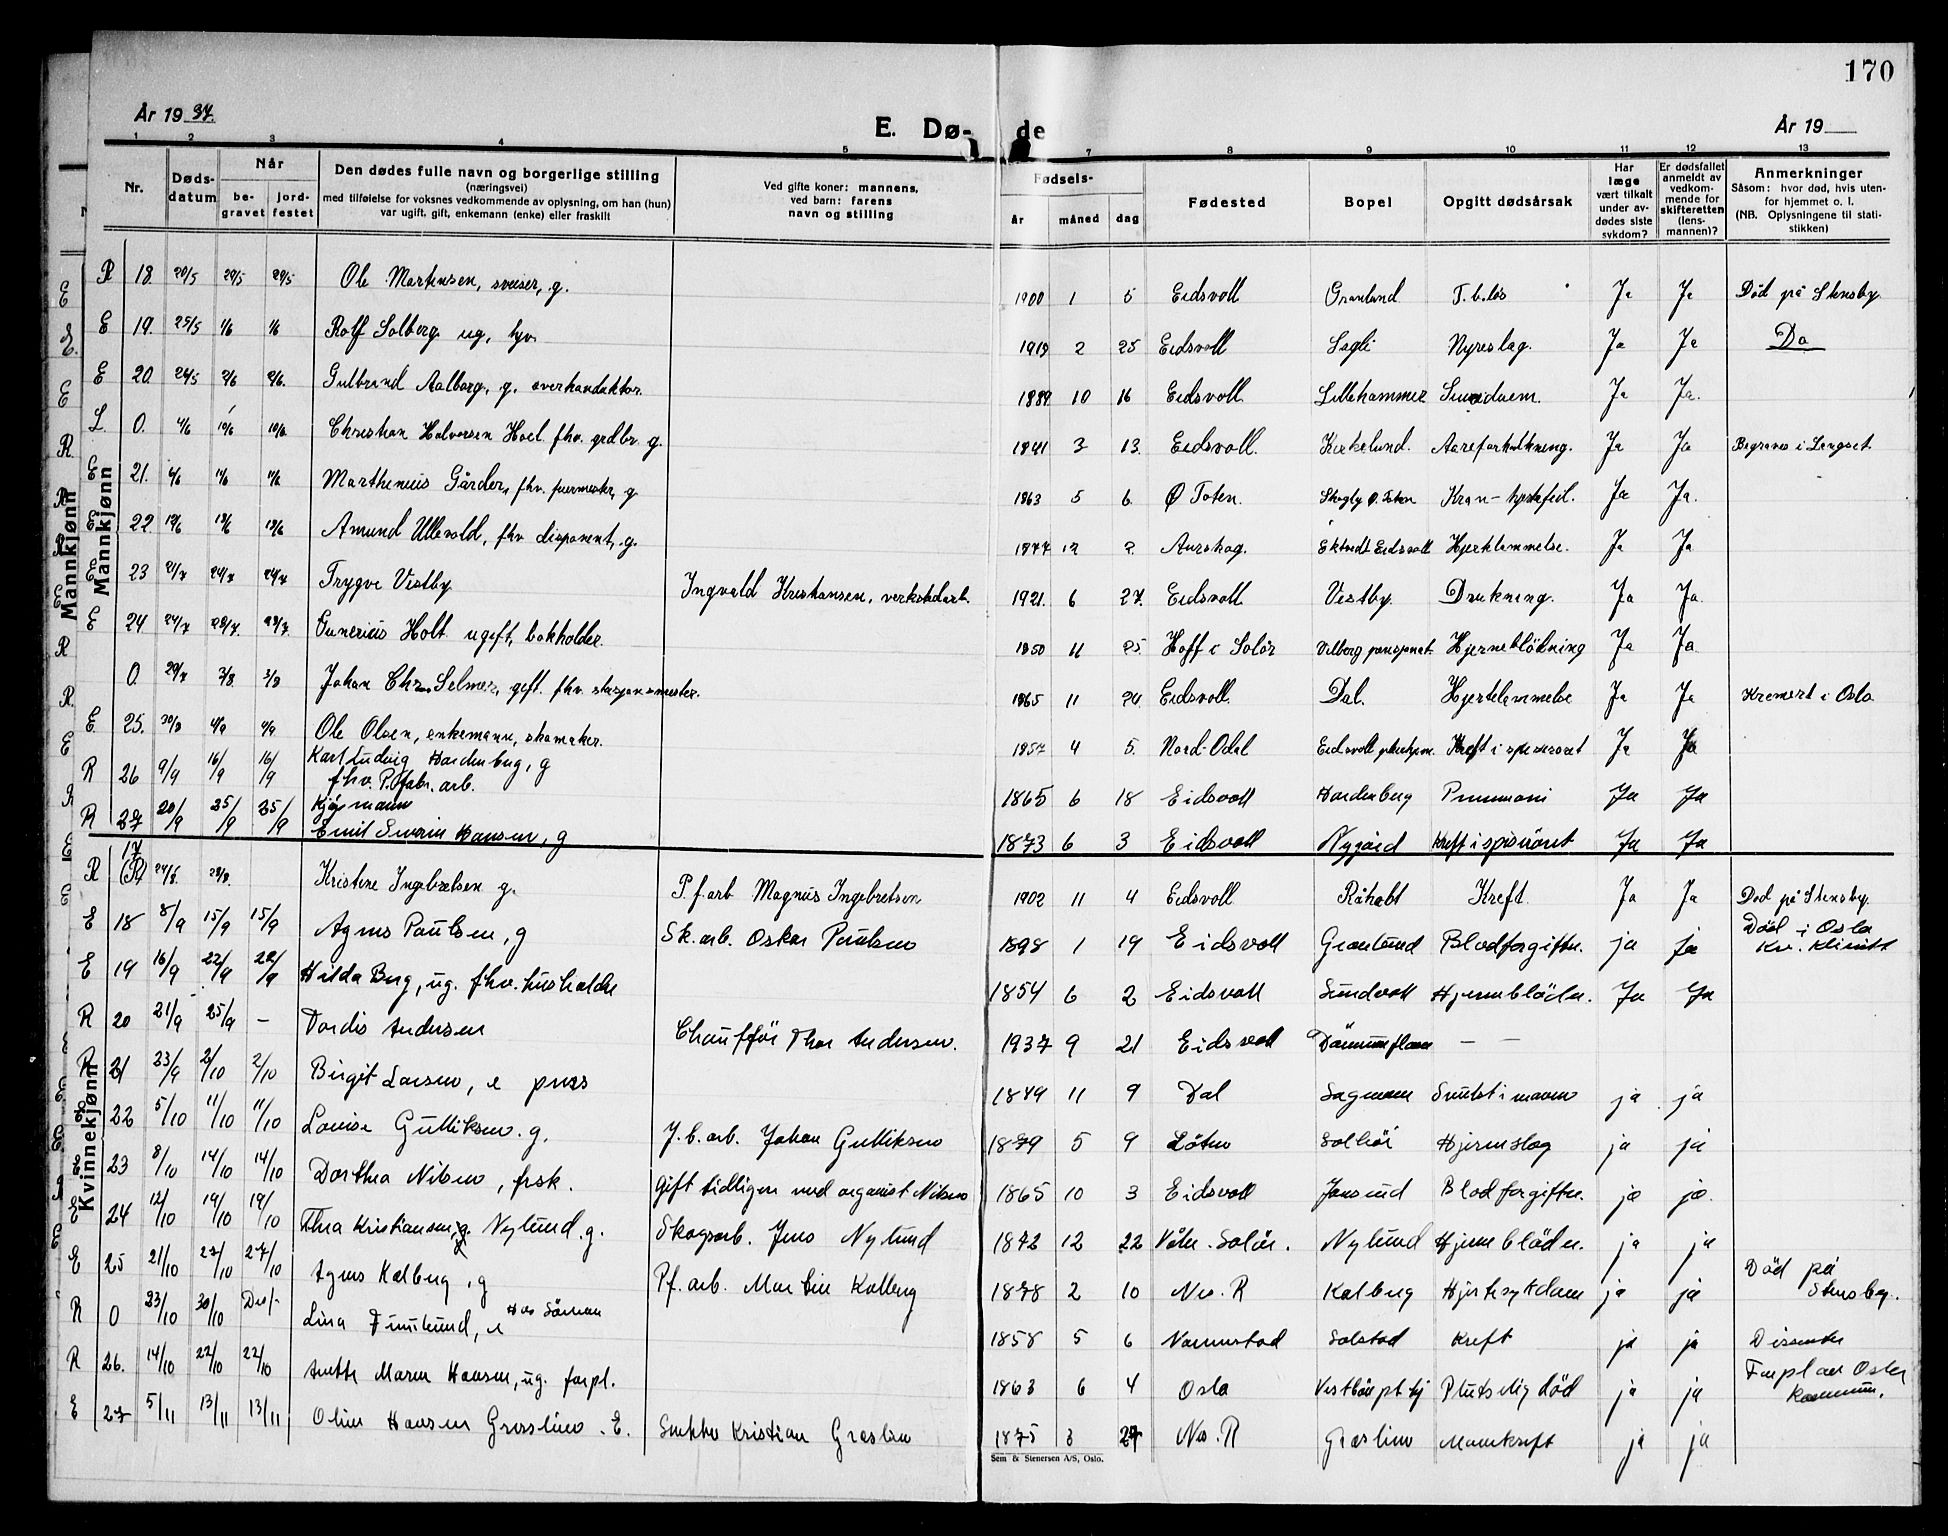 170
År 1937.
E. Dø- de
År 19
1 2 3 4 5 7 8 9 10 11 12 13
Nr.
Døds-datum
Når
be-gravet
jord-festet
Den dødes fulle navn og borgerlige stilling
(næringsvei)
med tilføielse for voksnes vedkommende av oplysning, om han (hun)
var ugift, gift, enkemann (enke) eller fraskilt
Ved gifte koner: mannens,
ved barn: farens
navn og stilling
Fødsels-
år måned dag
Fødested
Bopel
Opgitt dødsårsak
Har læge vært tilkalt under av-dødes siste sykdom?
Er dødsfallet anmeldt av vedkom-mende for skifteretten (lens-mannen)?
Anmerkninger
Såsom: hvor død, hvis uten-for hjemmet o. l.
(NB. Oplysningene til stati-stikken)
Mannkjønn
Mannkjønn
R 18. 20/5 29/5 29/5 Ole Martinsen, sveiser, g. 1900 1 5 Eidsvoll Granlund T.b.løs Ja Ja Død på Stensby
E 19. 25/5 1/6 1/6 Rolf Solberg ug, 1919 2 25 Eidsvoll Sagli Nyreslag. Ja Ja Do
E 20. 24/5 2/6 2/6. Gulbrand Aalborg, g. overkonduktør. 1889 10 16 Eidsvoll Lillehammer Ja Ja.
L. 0. 4/6 10/6 10/6 Christian Halvorsen Hoel fhv. grdbr. g. 1841 3 13. Eidsvoll. Kirkelund. Aareforkalkning. Ja Ja Begraves i Langset
E 21. 4/6 11/6 11/6 Marthinius Gårder, fhv. g 1863 5 6 Ø Toten. Skogly Ø. Toten Ja Ja.
E 22 12/6 18/6 18/6 Amund Ullevold, fhv disponent, g. 1877 12 2 Aurskog. Eidsvoll Hjertelammelse. Ja Ja
E 23 21/7 24/7 24/7 Trygve Vestby Ingvald Kristiansen, verkstedarb. 1921. 6 27. Eidsvoll Vestby. Drukning. Ja Ja
E 24 24/7 28/7. 28/7 Gunerius Holt ugift, bokholder. 1850 11 25. Hoff i Solør Vilberg pensjonat. Hjerneblødning Ja Ja
0. 29/7 3/8. 3/8 Johan Chr. Selmer, gift. fhv. stasjonsmester. 1865 11 24 Eidsvoll Dal. Hjertelammelse Ja Ja Kremert i Oslo
E 25. 30/8 4/9 4/9 Ole Olsen, enkemann, skomaker. 1857 4 5. Nord-Odal Eidsvoll pleiehjem. Kreft i spiserøret Ja Ja
R 26 9/9 16/9 16/9 Karl Ludvig Hardenberg, g
fhv. P.fabr. arb. 1865 6 18 Eidsvoll Hardenberg Pneumoni Ja Ja
R 27 20/9 25/9 25/9 Kjøpmann
Emil Severin Hansen, g 1873 6 3 Eidsvoll Nygård Kreft i spisrøret Ja Ja
Kvinnekjønn
R 17 (R) 24/8. 28/8. Kristine Ingebretsen g. P.f.arb Magnus Ingebretsen 1902 11 4 Eidsvoll Råholt Kreft Ja Ja Død på Stensby.
E 18 8/9 15/9 15/9 Agnes Paulsen, g Sk.arb. Oskar Paulsen 1898 1 19 Eidsvoll Granlund Blodforgiftn. ja ja Død i Oslo
Kv. Klinikk
E 19 16/9 22/9 22/9 Hilda Berg, ug. fhv. husholdr 1854 6 2 Eidsvoll Sundvoll Hjerneblødn. Ja Ja
R 20 21/9 25/9 – Tordis Andersen Chauffør Thor Andersen. 1937 9 21 Eidsvoll – –
R 21 23/9 2/10 2/10 Birgit Larsen, e 1849 11 9 Dal Sagmoen Svulst i maven ja ja
22 5/10 11/10 11/10 Lovise Gulliksen. g. J.b.arb. Johan Gulliksen 1879 5 9 Løten Solhøi Hjerneslag ja ja
23 8/10 14/10 14/10 Dorthea Nilsen, frsk. Gift tidligere med organist Nilsen 1865 10 3 Eidsvoll Blodforgiftn. ja ja.
E 24 12/10 19/10 19/10 Thea Kristiansen, g. Nylund. g. Skogsarb. Jens Nylund 1872 12 22 Våler. Solør. Nylund Hjerneblødn. ja ja
E 25 21/10 27/10 27/10 Agnes Kolberg, g Pf.arb. Martin Kolberg 1878 2 10 Nes. R Kolberg Hjertesykdom ja ja Død på
Stensby.
R 0 23/10 30/10 Lina e 1858 5 6 Solstad Kreft ja ja Dissenter
R 26. 14/10 22/10 22/10 Anette Maren Hansen, ug. forpl. 1863 6 4 Oslo Plutselig død ja ja Forpl. av Oslo
Kommune.
E 27 5/11 13/11 13/11 Oline Hansen Græslien. E. Snekker Kristian Græslien 1875 3 27 Nes. R Græslien Mavekreft ja ja
Sem & Stenersen A/S, Oslo.